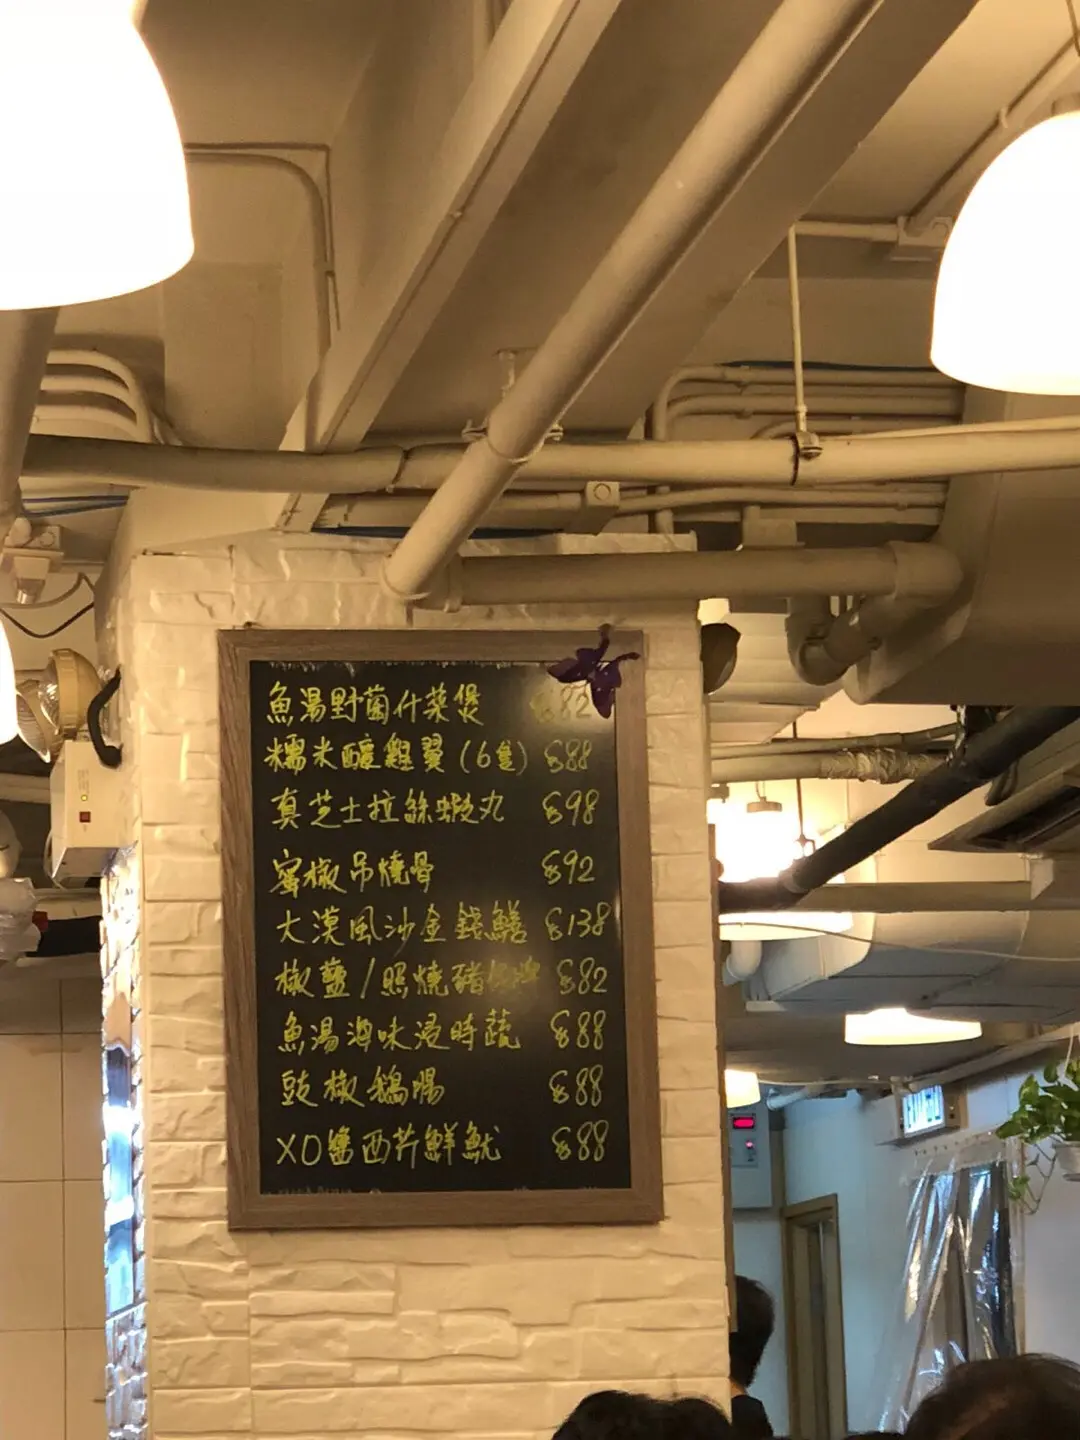 魚湯野菌什菜煲 $82
糯米釀雞翼(6隻) $88
真芝士拉絲蝦丸 $98
蜜椒吊燒骨 $92
大漠風沙金錢鱔 $138
椒鹽/照燒豬 $82
魚湯海味浸時蔬 $88
豉椒鵝腸 $88
XO醬西芹鮮魷 $88